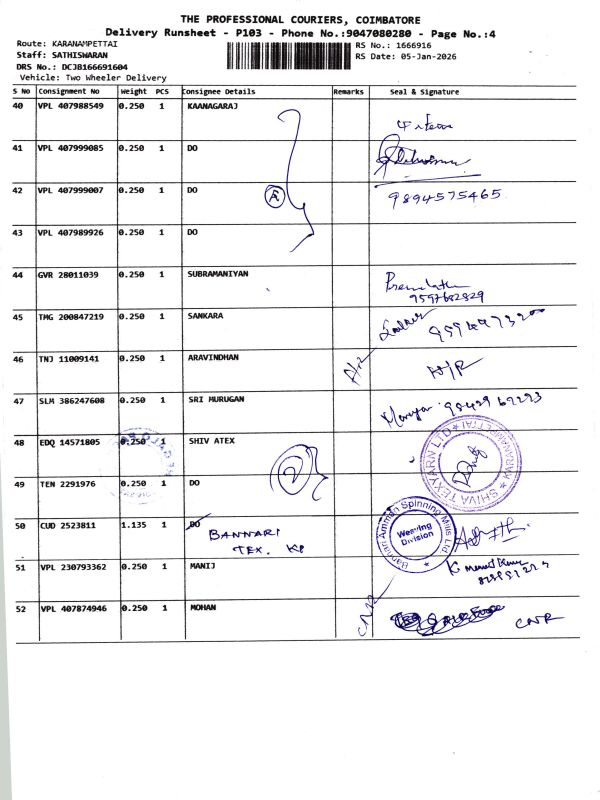 THE PROFESSIONAL COURIERS, COIMBATORE
Delivery Runsheet - P103 - Phone No.:9047080280 - Page No.:4
Route: KARANAMPETTAI
Staff: SATHISWARAN
DRS No.: DCJB166691604
Vehicle: Two Wheeler Delivery
RS No.: 1666916
RS Date: 05-Jan-2026
S No Consignment No Weight PCS Consignee Details Remarks Seal & Signature
40 VPL 407988549 0.250 1 KAANAGARAJ
41 VPL 407999085 0.250 1 DO
42 VPL 407999007 0.250 1 DO 9894575465
43 VPL 407989926 0.250 1 DO
44 GVR 28011039 0.250 1 SUBRAMANIYAN
9597682829
45 TMG 200847219 0.250 1 SANKARA
46 TNJ 11009141 0.250 1 ARAVINDHAN
47 SLM 386247608 0.250 1 SRI MURUGAN
48 EDQ 14571805 0.250 1 SHIV ATEX
SHIVA TEXYARN LTD KARANAMPETTAI
49 TEN 2291976 0.250 1 DO
50 CUD 2523811 1.135 1 DO
BANNARI
TEX. KP
Bannari Amman Spinning Mills Ltd
Weaving
Division
51 VPL 230793362 0.250 1 MANIJ
52 VPL 407874946 0.250 1 MOHAN